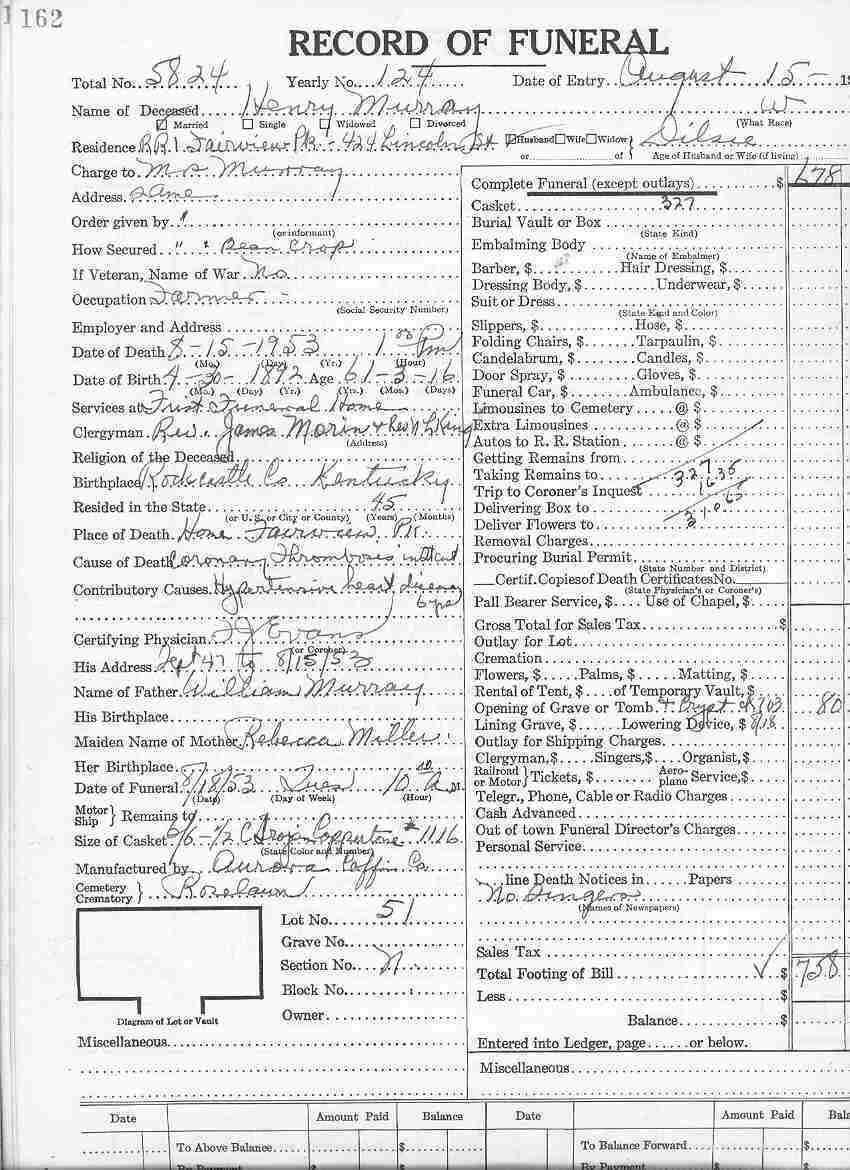 162
RECORD OF FUNERAL
Total No. 5824 Yearly No. 124 Date of Entry August 15- 19
Name of Deceased Henry Murray W
Married Single Widowed Divorced (What Race)
Residence R.R.1. Fairview Pk - 424 Lincoln St Husband Wife Widow } Dilsie
or of Age of Husband or Wife (if living)
Charge to Mrs Murray
Address same
Order given by "
(or informant)
How Secured " "
If Veteran, Name of War No
Occupation Farmer -
(Social Security Number)
Employer and Address
Date of Death 8-15-1953 1 00 Pm
(Mo.) (Day) (Yr.) (Hour)
Date of Birth 4-30-1892 Age 61-3-16
(Mo.) (Day) (Yr.) (Yrs.) (Mos.) (Days)
Services at Frist Funeral Home
Clergyman Rev. James Morin & Rev N L King
(Address)
Religion of the Deceased
Birthplace Rockcastle Co. Kentucky
Resided in the State 45
(or U. S. or City or County) (Years) (Months)
Place of Death Home Fairview Pk.
Cause of Death Coronary Thrombosis instant
Contributory Causes Hypertensive heart disease
6 yrs
Certifying Physician Evans
(or Coroner)
His Address Sept 47 to 8/15/53
Name of Father William Murray
His Birthplace
Maiden Name of Mother Rebecca Miller
Her Birthplace
Date of Funeral 8/18/53 Tues 10 00 A M.
(Date) (Day of Week) (Hour)
Motor Ship } Remains to
Size of Casket 6/6-1/2 C Troja Coppertone # 1116
(State Color and Number)
Manufactured by Aurora Coffin Co
Cemetery Crematory } Roselawn
Lot No. 51
Grave No.
Section No. N
Block No.
Owner
Diagram of Lot or Vault
Miscellaneous
Complete Funeral (except outlays) $ 678
Casket 327
Burial Vault or Box
(State Kind)
Embalming Body
(Name of Embalmer)
Barber, $ Hair Dressing, $
Dressing Body, $ Underwear, $
Suit or Dress
(State Kind and Color)
Slippers, $ Hose, $
Folding Chairs, $ Tarpaulin, $
Candelabrum, $ Candles, $
Door Spray, $ Gloves, $
Funeral Car, $ Ambulance, $
Limousines to Cemetery @ $
Extra Limousines @ $
Autos to R. R. Station @ $
Getting Remains from
Taking Remains to 327
Trip to Coroner's Inquest 16.35
Delivering Box to 310.65
Deliver Flowers to
Removal Charges
Procuring Burial Permit
(State Number and District)
Certif. Copies of Death Certificates No.
(State Physician's or Coroner's)
Pall Bearer Service, $ Use of Chapel, $
Gross Total for Sales Tax $
Outlay for Lot
Cremation
Flowers, $ Palms, $ Matting, $
Rental of Tent, $ of Temporary Vault, $
Opening of Grave or Tomb & Crypt. 80
Lining Grave, $ Lowering Device, $ 8/18
Outlay for Shipping Charges
Clergyman, $ Singers, $ Organist, $
Railroad or Motor } Tickets, $ Aeroplane Service, $
Telegr., Phone, Cable or Radio Charges
Cash Advanced
Out of town Funeral Director's Charges
Personal Service
line Death Notices in Papers
No Singers
(Names of Newspapers)
Sales Tax
Total Footing of Bill $ 758
Less $
Balance $
Entered into Ledger, page or below.
Miscellaneous
Date Amount Paid Balance Date Amount Paid Bala
To Above Balance $ To Balance Forward $
By Payment By Payment